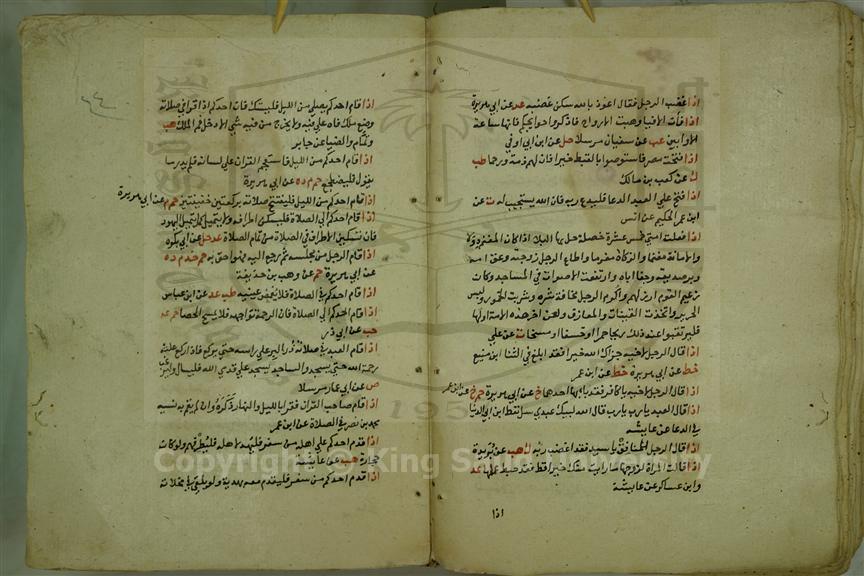 اذا غضب الرجل فقال اعوذ بالله سكن غضبه عد عن ابي هريرة
اذا فات الافيا وهبت الارواح فاذكروا حوايجكم فانها ساعة
الاوابين عب عن سفيان مرسلا حل عن ابن ابي اوفي
اذا فتحت مصر فاستوصوا بالقبط خيرا فان لهم ذمة ورحما طب
ك عن كعب بن مالك
اذا فتح علي العبد الدعا فليدع ربه فان الله يستجيب له ت عن
ابن عمر الحكيم عن انس
اذا فعلت امتي خمس عشرة خصلة حل بها البلا اذا كان المغنم دولا
والامانة مغنما والزكاة مغرما واطاع الرجل زوجته وعق امه
وبر صديقه وجفا اباه وارتفعت الاصوات في المساجد وكان
زعيم القوم ارذلهم واكرم الرجل مخافة شره وشربت الخمور ولبس
الحرير واتخذت القينات والمعازف ولعن اخر هذه الامة اولها
فليرتقبوا عند ذلك ريحا حمرا او خسفا او مسخا ت عن علي
اذا قال الرجل لاخيه جزاك الله خيرا فقد ابلغ في الثنا ابن منيع
خط عن ابي هريرة خط عن ابن عمر
اذا قال الرجل لاخيه يا كافر فقد باء بها احدهما خ عن ابي هريرة حم خ عن ابن عمر
اذا قال العبد يا رب يا رب قال الله لبيك عبدي سل تعط ابن ابي الدنيا
في الدعا عن عايشة
اذا قال الرجل للمنافق يا سيد فقد اغضب ربه ك هب عن بريدة
اذا قالت المراة لزوجها ما رايت منك خيرا قط فقد حبط عملها عد
وابن عساكر عن عايشة
اذا
اذا قام احدكم يصلي من الليل فليستك فان احدكم اذا قرا في صلاته
وضع ملك فاه علي فيه ولا يخرج من فيه شي الا دخل فم الملك هب
وتمام والضيا عن جابر
اذا قام احدكم من الليل فاستعجم القران علي لسانه فلم يدر ما
يقول فليضطجع حم م د ه عن ابي هريرة
اذا قام احدكم من الليل فليفتتح صلاته بركعتين خفيفتين حم م عن ابي هريرة
اذا قام احدكم الي الصلاة فليسكن اطرافه ولا يتميل كما تتميل اليهود
فان تسكين الاطراف في الصلاة من تمام الصلاة عد حل عن ابي بكر
اذا قام الرجل من مجلسه ثم رجع اليه فهو احق به حم خد م د ه
عن ابي هريرة حم عن وهب بن حذيفة
اذا قام احدكم في الصلاة فلا يغمض عينيه طب عد عن ابن عباس
اذا قام احدكم الي الصلاة فان الرحمة تواجهه فلا يمسح الحصا حم عد
حب عن ابي ذر
اذا قام العبد في صلاته ذر البر علي راسه حتي يركع فاذا ركع علته
رحمة الله حتي يسجد والساجد يسجد علي قدمي الله فليسال وليرغب
ص عن ابي عمار مرسلا
اذا قام صاحب القران فقرا بالليل والنهار ذكره وان لم يقم به نسيه
محمد بن نصر في الصلاة عن ابن عمر
اذا قدم احدكم علي اهله من سفر فليهد لاهله فليطرفهم ولو كانت
حجارة هب عن عايشة
اذا قدم احدكم من سفر فليقدم معه بهدية ولو يلقي في مخلاته
Copyright © King S y
195